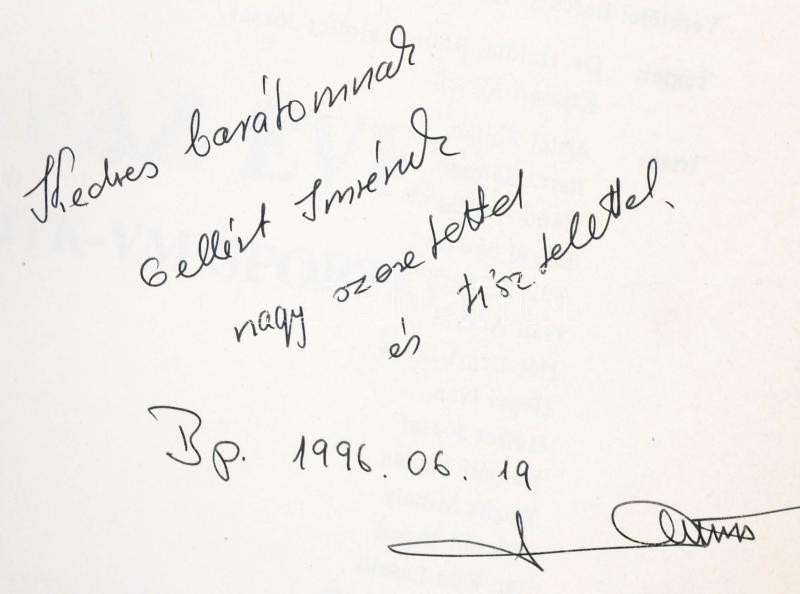 Kedves barátomnak
Gellért Imrének
nagy szeretettel
és tisztelettel.
Bp. 1996. 06. 19